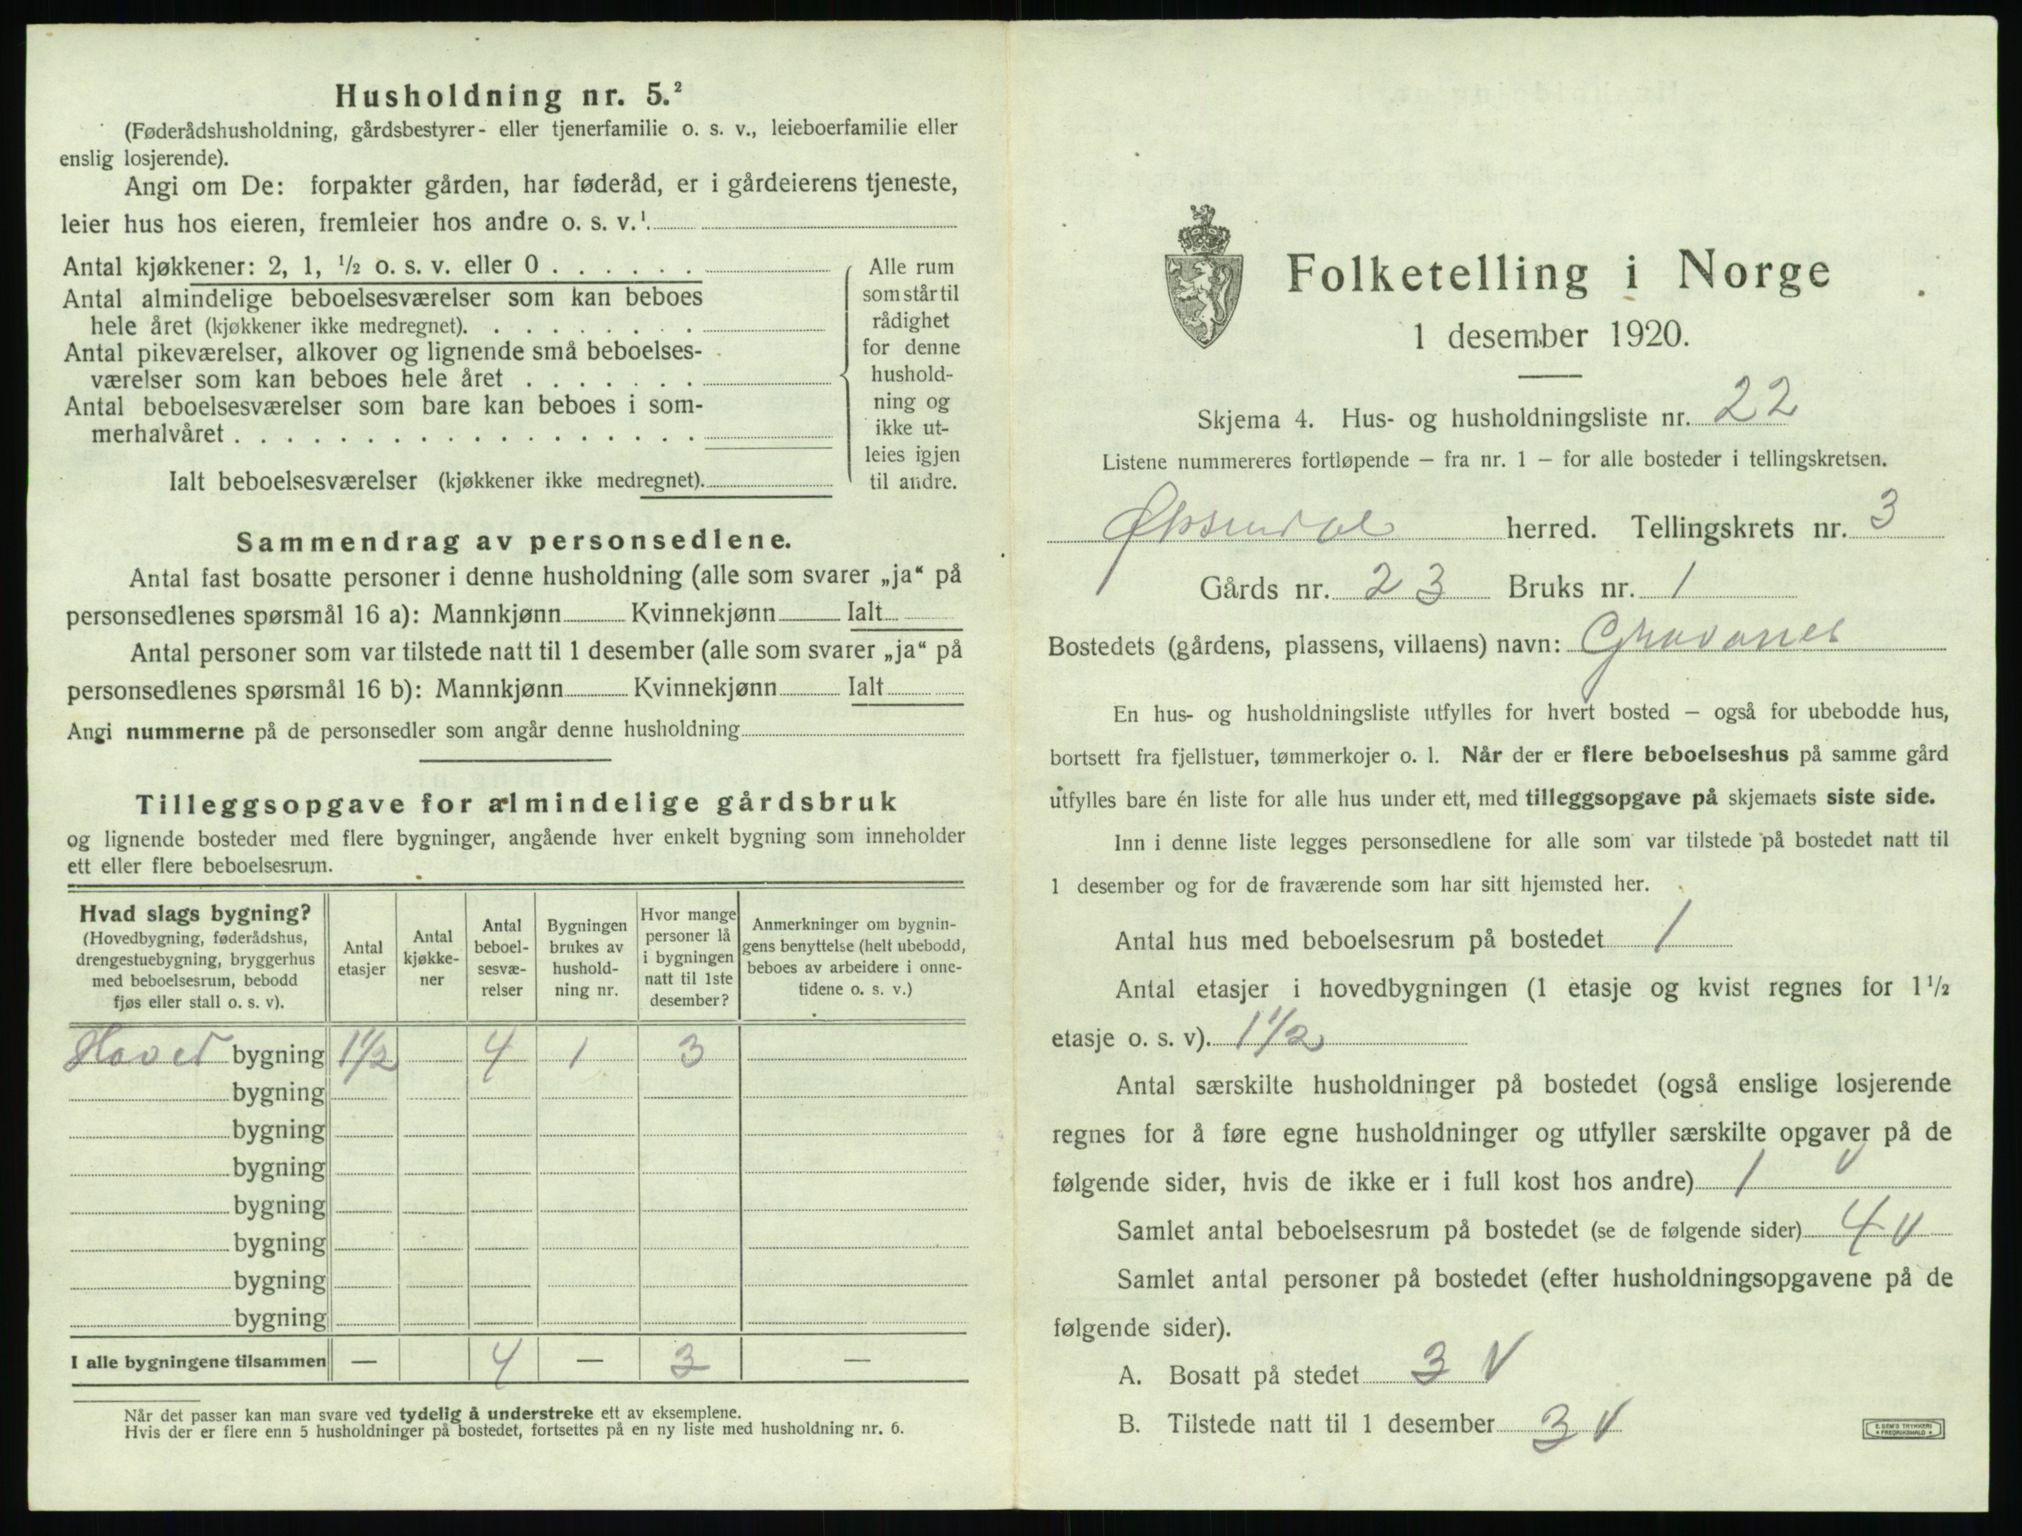 Husholdning nr. 5.²
(Føderådshusholdning, gårdsbestyrer- eller tjenerfamilie o. s. v., leieboerfamilie eller
enslig losjerende).
Angi om De: forpakter gården, har føderåd, er i gårdeierens tjeneste,
leier hus hos eieren, fremleier hos andre o. s. v.¹
Antal kjøkkener: 2, 1, ½ o. s. v. eller 0 . . . . . .
Antal almindelige beboelsesværelser som kan beboes
hele året (kjøkkener ikke medregnet). . . . . . . . .
Antal pikeværelser, alkover og lignende små beboelses-
værelser som kan beboes hele året . . . . . . .
Antal beboelsesværelser som bare kan beboes i som-
merhalvåret . . . . . . . . . . . . . . . . . .
Ialt beboelsesværelser (kjøkkener ikke medregnet).
Alle rum
som står til
rådighet
for denne
hushold-
ning og
ikke ut-
leies igjen
til andre.
Sammendrag av personsedlene.
Antal fast bosatte personer i denne husholdning (alle som svarer „ja“ på
personsedlenes spørsmål 16 a): Mannkjønn Kvinnekjønn Ialt
Antal personer som var tilstede natt til 1 desember (alle som svarer „ja“ på
personsedlenes spørsmål 16 b): Mannkjønn Kvinnekjønn Ialt
Angi nummerne på de personsedler som angår denne husholdning
Tilleggsopgave for almindelige gårdsbruk
og lignende bosteder med flere bygninger, angående hver enkelt bygning som inneholder
ett eller flere beboelsesrum.
Hvad slags bygning?
(Hovedbygning, føderådshus,
drengestuebygning, bryggerhus
med beboelsesrum, bebodd
fjøs eller stall o. s. v).
Antal
etasjer
Antal
kjøkke-
ner
Antal
beboel-
sesvæ-
relser
Bygningen
brukes av
hushold-
ning nr.
Hvor mange
personer lå
i bygningen
natt til 1ste
desember?
Anmerkninger om bygnin-
gens benyttelse (helt ubebodd,
beboes av arbeidere i onne-
tidene o. s. v.)
Hoved bygning 1½ 4 1 3
bygning
bygning
bygning
bygning
bygning
bygning
bygning
I alle bygningene tilsammen — 4 — 3 —
Når det passer kan man svare ved tydelig å understreke ett av eksemplene.
Hvis der er flere enn 5 husholdninger på bostedet, fortsettes på en ny liste med husholdning nr. 6.
Folketelling i Norge
1 desember 1920.
Skjema 4. Hus- og husholdningsliste nr. 22
Listene nummereres fortløpende – fra nr. 1 – for alle bosteder i tellingskretsen.
Øksendal herred. Tellingskrets nr. 3
Gårds nr. 23 Bruks nr. 1
Bostedets (gårdens, plassens, villaens) navn: Gravanes
En hus- og husholdningsliste utfylles for hvert bosted – også for ubebodde hus,
bortsett fra fjellstuer, tømmerkojer o. l. Når der er flere beboelseshus på samme gård
utfylles bare én liste for alle hus under ett, med tilleggsopgave på skjemaets siste side.
Inn i denne liste legges personsedlene for alle som var tilstede på bostedet natt til
1 desember og for de fraværende som har sitt hjemsted her.
Antal hus med beboelsesrum på bostedet 1
Antal etasjer i hovedbygningen (1 etasje og kvist regnes for 1½
etasje o. s. v). 1½
Antal særskilte husholdninger på bostedet (også enslige losjerende
regnes for å føre egne husholdninger og utfyller særskilte opgaver på de
følgende sider, hvis de ikke er i full kost hos andre) 1 V
Samlet antal beboelsesrum på bostedet (se de følgende sider) 4 V
Samlet antal personer på bostedet (efter husholdningsopgavene på de
følgende sider).
A. Bosatt på stedet 3 V
B. Tilstede natt til 1 desember 3 V
E. SEM'S TRYKKERI
• FREDRIKSHALD •